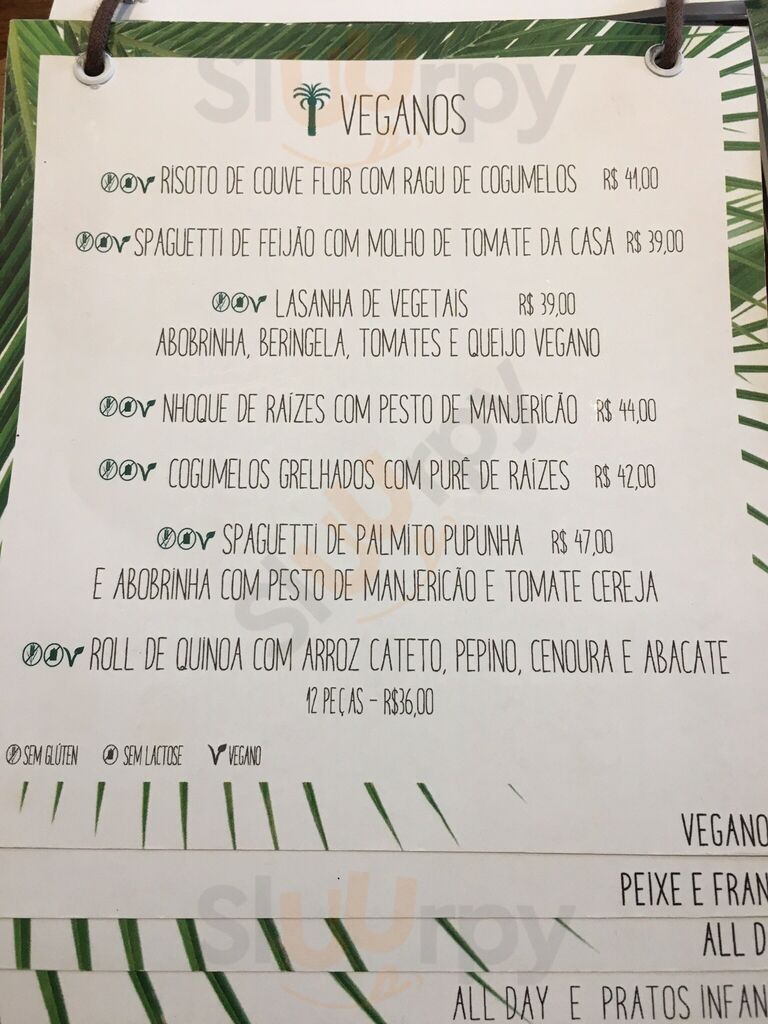 VEGANOS
RISOTO DE COUVE FLOR COM RAGU DE COGUMELOS R$ 41,00
SPAGUETTI DE FEIJÃO COM MOLHO DE TOMATE DA CASA R$ 39,00
LASANHA DE VEGETAIS R$ 39,00
ABOBRINHA, BERINGELA, TOMATES E QUEIJO VEGANO
NHOQUE DE RAÍZES COM PESTO DE MANJERICÃO R$ 44,00
COGUMELOS GRELHADOS COM PURÊ DE RAÍZES R$ 42,00
SPAGUETTI DE PALMITO PUPUNHA R$ 47,00
E ABOBRINHA COM PESTO DE MANJERICÃO E TOMATE CEREJA
ROLL DE QUINOA COM ARROZ CATETO, PEPINO, CENOURA E ABACATE
12 PEÇAS - R$36,00
SEM GLÚTEN SEM LACTOSE VEGANO
VEGANO
PEIXE E FRAN
ALL D
ALL DAY E PRATOS INFAN
Sluurpy
Sluurpy
Sluurpy